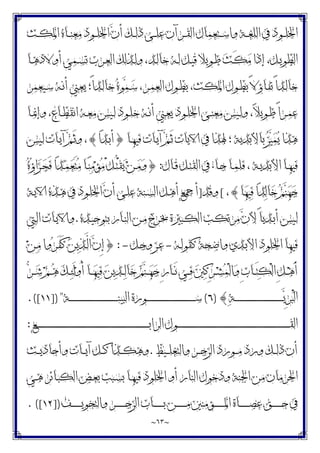 الخلود في اللغة واستعمال القرآن على ذلك أن الخلود معناه المكث
الطويل، إذا مكث طويلا قيل له خالد، ولذلك العرب تسمي أولادها
خالداً تفاؤلاً بطول المكث، بطول العمر، وسموه خالداً؛ يعني أنه سيعمر
عمراً طويلاً، وليس معنى الخلود يعني أنه خلود ليس معه انقطاع، وإنما
هذا يميز بالأبدية؛ لهذا في الآيات ثم آيات فيها ﴿ أبداً ﴾، وثم آيات ليس
فيها الأبدية، فلما جاء في القتل قال: ﴿ وَمَن يَقْتُلْ مُؤْمِنًا مُّتَعَمِّدًا فَجَزَاؤُهُ
جَهَنَّمُ خَالِدًا فِيهَا ﴾، [وقد] أجمع أهل السنة على أن الخلود في هذه الآية
ليس أبدياً لأن مرتكب الكبيرة يخرج من النار بتوحيده. والآيات التي
فيها الخلود الأبدي واضحة كقوله - عز وجل -: ﴿ إِنَّ الَّذِينَ كَفَرُوا مِنْ
أَهْلِ الْكِتَابِ وَالْمُشْرِكِينَ فِي نَارِ جَهَنَّمَ خَالِدِينَ فِيهَا أُولَئِكَ هُمْ شَرُّ
الْبَرِيَّةِ ﴾ (٦) ســورة البينــة" ([١١]).
القــول الرابــع:
أن ذلك ورد مورد الزجر والتغليظ. وهكذا كل آيات وأحاديث
الحرمان من الجنة ودخول النار أو الخلود فيها بسبب بعض الكبائر هي
في حق عصاة المؤمنين من باب الزجر والتخويف ([١٢]).
~٦٣~